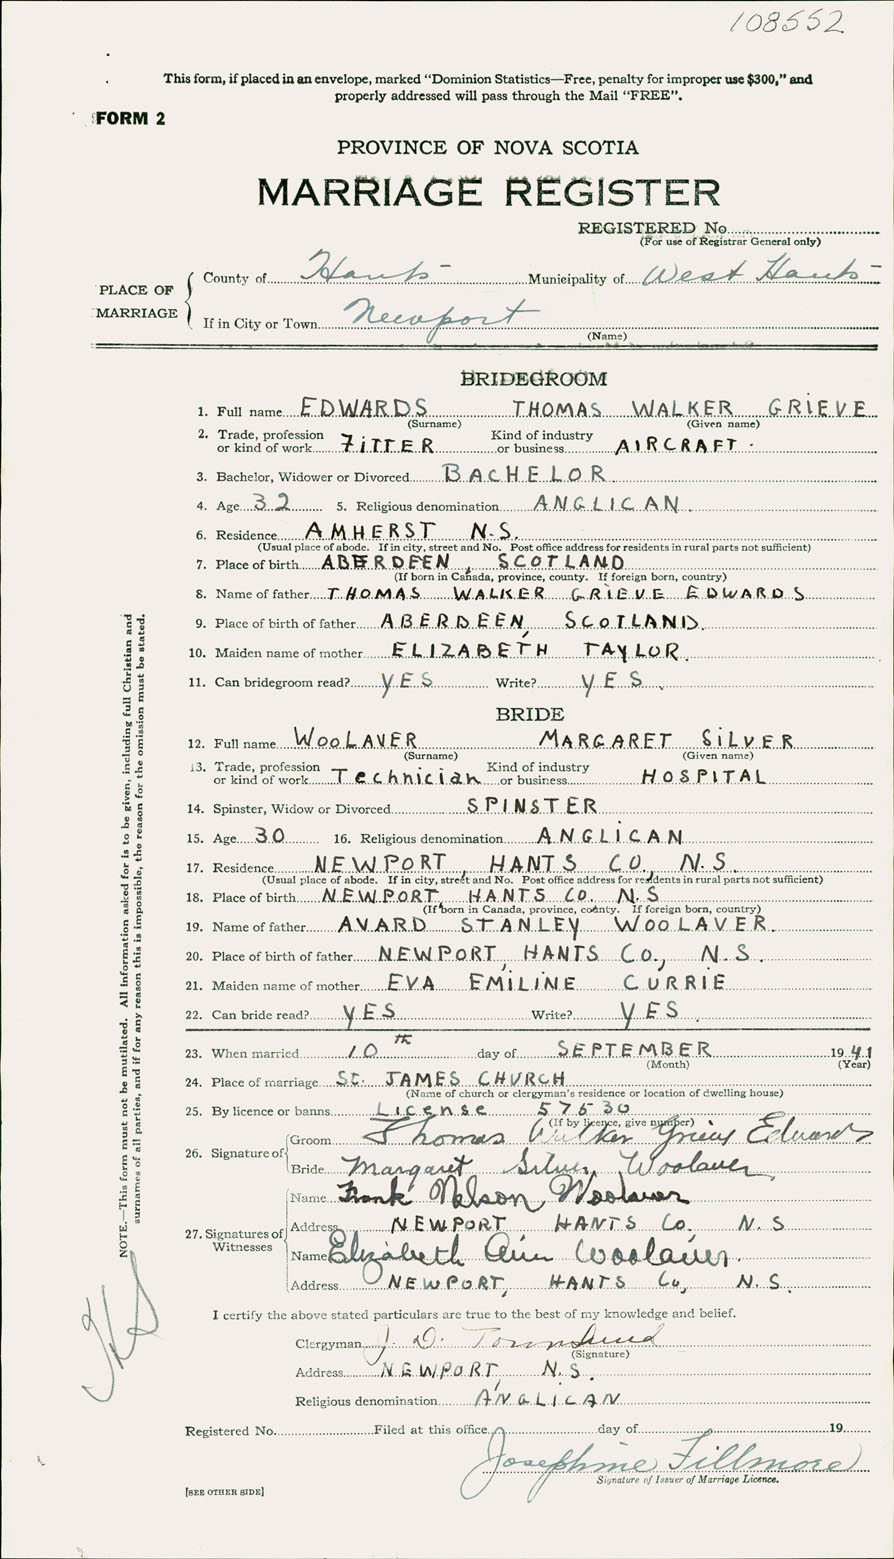 108552
This form, if placed in an envelope, marked "Dominion Statistics—Free, penalty for improper use $300," and
properly addressed will pass through the Mail "FREE".
FORM 2
PROVINCE OF NOVA SCOTIA
MARRIAGE REGISTER
REGISTERED No.
(For use of Registrar General only)
PLACE OF MARRIAGE
County of Hants Municipality of West Hants
If in City or Town Newport
(Name)
BRIDEGROOM
1. Full name EDWARDS THOMAS WALKER GRIEVE
(Surname) (Given name)
2. Trade, profession or kind of work FITTER Kind of industry or business AIRCRAFT.
3. Bachelor, Widower or Divorced BACHELOR
4. Age 32 5. Religious denomination ANGLICAN.
6. Residence AMHERST N.S.
(Usual place of abode. If in city, street and No. Post office address for residents in rural parts not sufficient)
7. Place of birth ABERDEEN, SCOTLAND
(If born in Canada, province, county. If foreign born, country)
8. Name of father THOMAS WALKER GRIEVE EDWARDS
9. Place of birth of father ABERDEEN, SCOTLAND.
10. Maiden name of mother ELIZABETH TAYLOR.
11. Can bridegroom read? YES Write? YES.
BRIDE
12. Full name WOOLAVER MARGARET SILVER
(Surname) (Given name)
13. Trade, profession or kind of work Technician Kind of industry or business HOSPITAL
14. Spinster, Widow or Divorced SPINSTER
15. Age 30 16. Religious denomination ANGLICAN
17. Residence NEWPORT, HANTS CO, N.S.
(Usual place of abode. If in city, street and No. Post office address for residents in rural parts not sufficient)
18. Place of birth NEWPORT, HANTS Co. N.S
(If born in Canada, province, county. If foreign born, country)
19. Name of father AVARD STANLEY WOOLAVER.
20. Place of birth of father NEWPORT, HANTS Co., N.S.
21. Maiden name of mother EVA EMILINE CURRIE
22. Can bride read? YES Write? YES.
23. When married 10th day of SEPTEMBER 1941
(Month) (Year)
24. Place of marriage St. JAMES CHURCH
(Name of church or clergyman's residence or location of dwelling house)
25. By licence or banns License 57530
(If by licence, give number)
26. Signature of
Groom Thomas Walker Grieve Edwards
Bride Margaret Silver Woolaver
27. Signatures of Witnesses
Name Frank Nelson Woolaver
Address NEWPORT HANTS Co. N.S
Name Elizabeth Ann Woolaver.
Address NEWPORT, HANTS Co, N.S.
I certify the above stated particulars are true to the best of my knowledge and belief.
Clergyman J. D. Townsend
(Signature)
Address NEWPORT, N.S.
Religious denomination ANGLICAN
Registered No. Filed at this office day of 19
Josephine Fillmore
Signature of Issuer of Marriage Licence.
[SEE OTHER SIDE]
NOTE.—This form must not be mutilated. All information asked for is to be given, including full Christian and
surnames of all parties, and if for any reason this is impossible, the reason for the omission must be stated.